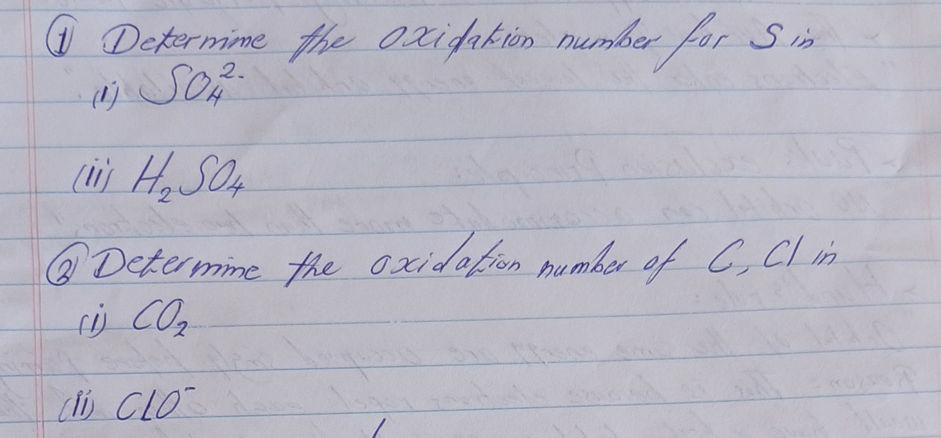 ① Determine the oxidation number for S in
(i) SO₄²⁻
(ii) H₂SO₄
② Determine the oxidation number of C, Cl in
(i) CO₂
(ii) ClO⁻